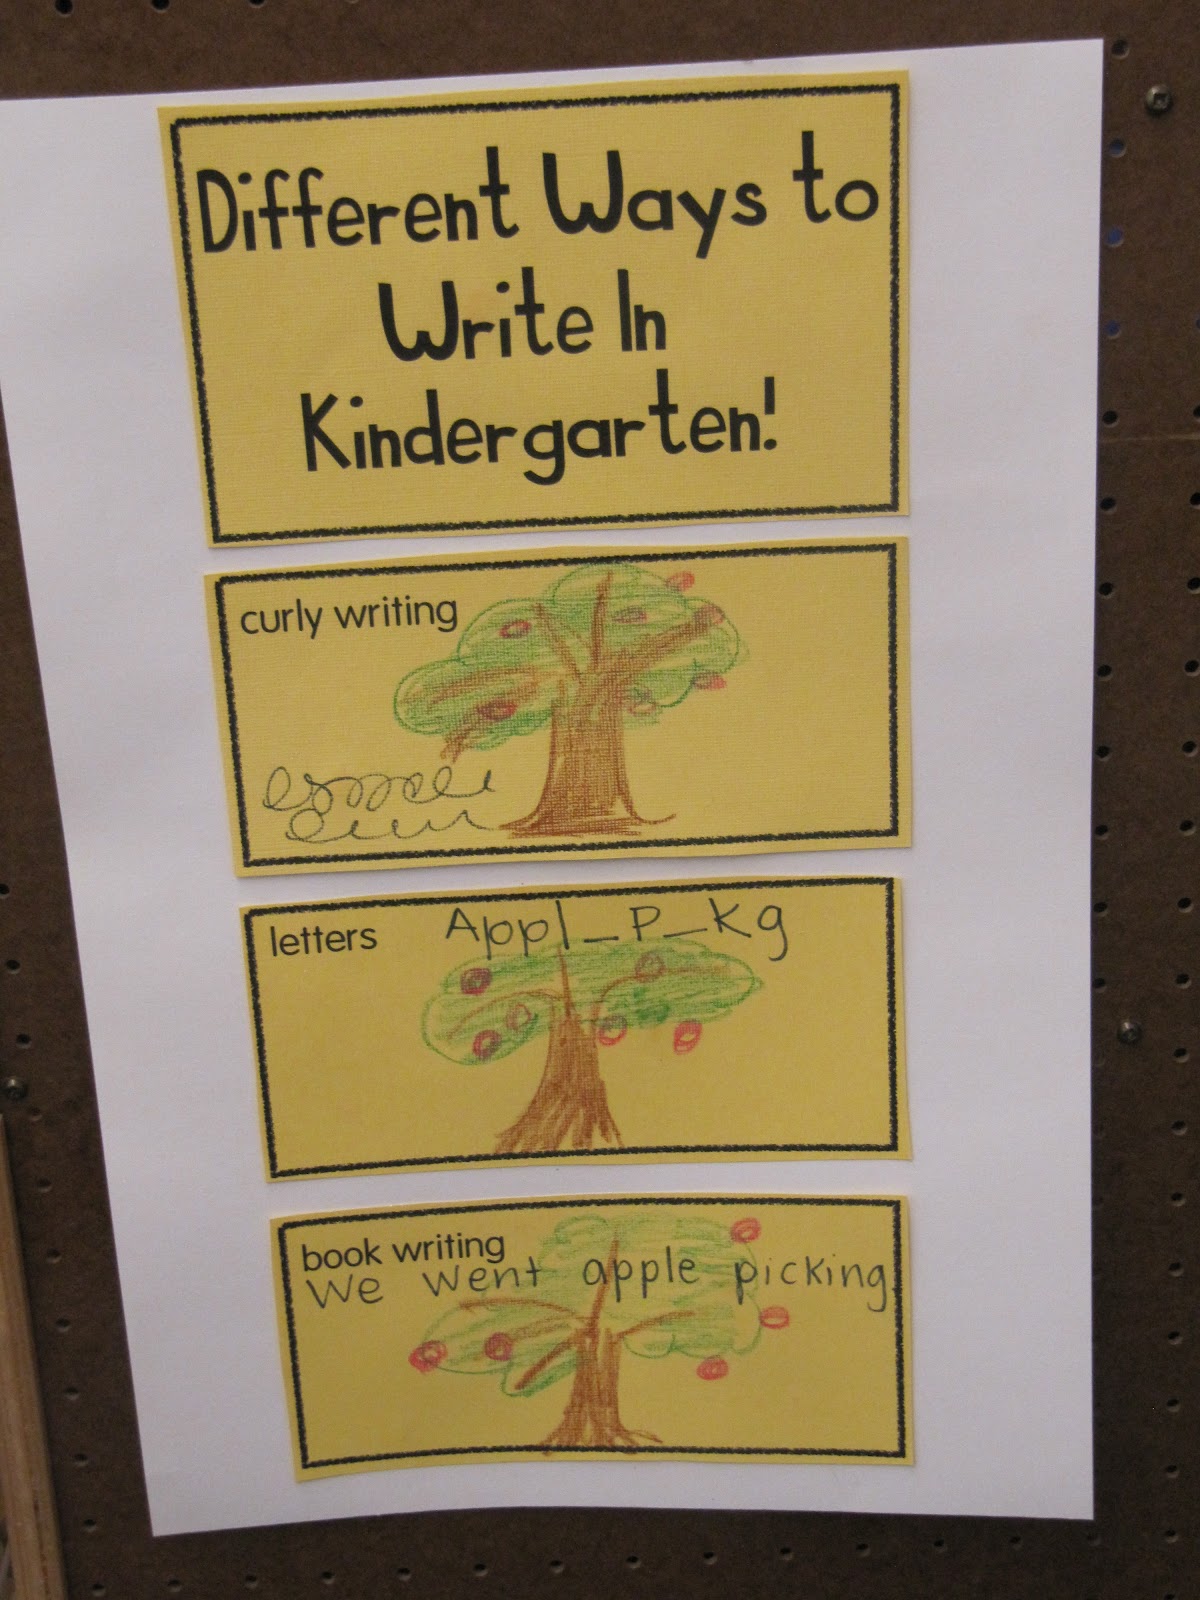 Different Ways to
Write In
Kindergarten!
curly writing
letters
Appl_p_kg
book writing
We went apple picking